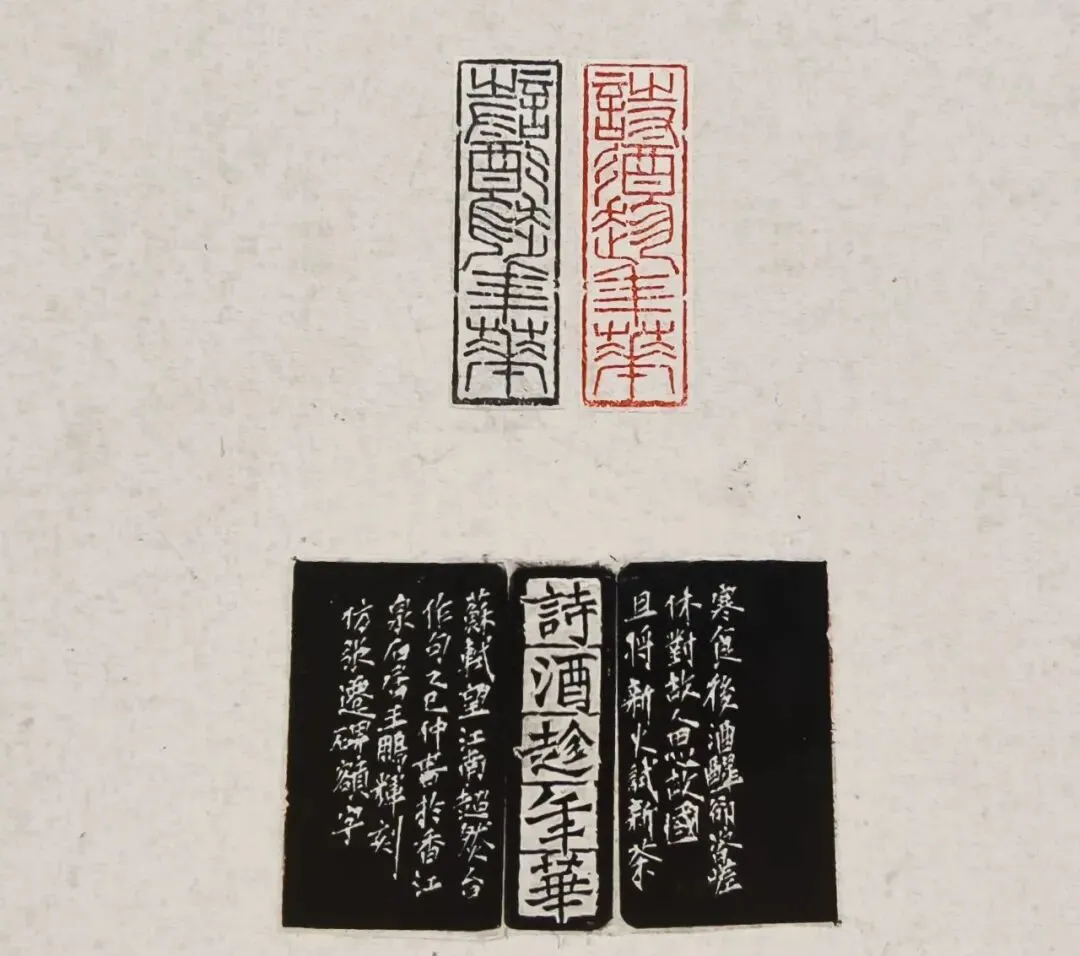 詩酒趁年華
詩酒趁年華
寒食後酒醒卻咨嗟
休對故人思故國
且將新火試新茶
詩酒趁年華
蘇軾望江南超然台
作句乙巳仲春於香江
泉石居王鵬輝刻
仿張遷碑額字